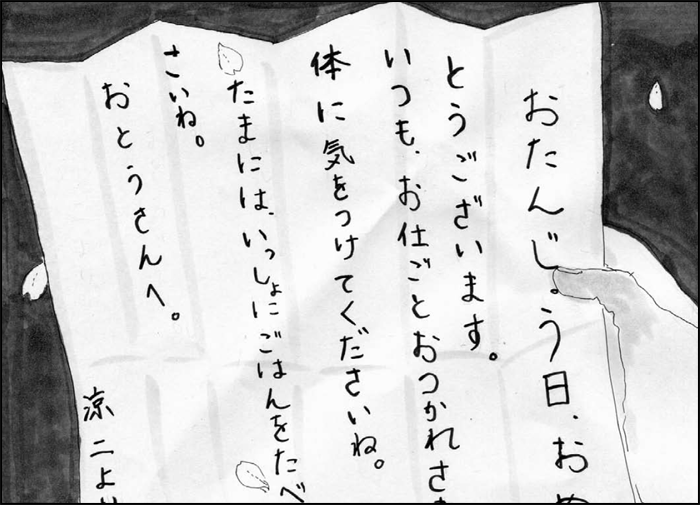 おたんじょう日、おめ
とうございます。
いつも、お仕ごとおつかれさま
体に気をつけてくださいね。
たまには、いっしょにごはんをたべ
さいね。
おとうさんへ。
涼二より